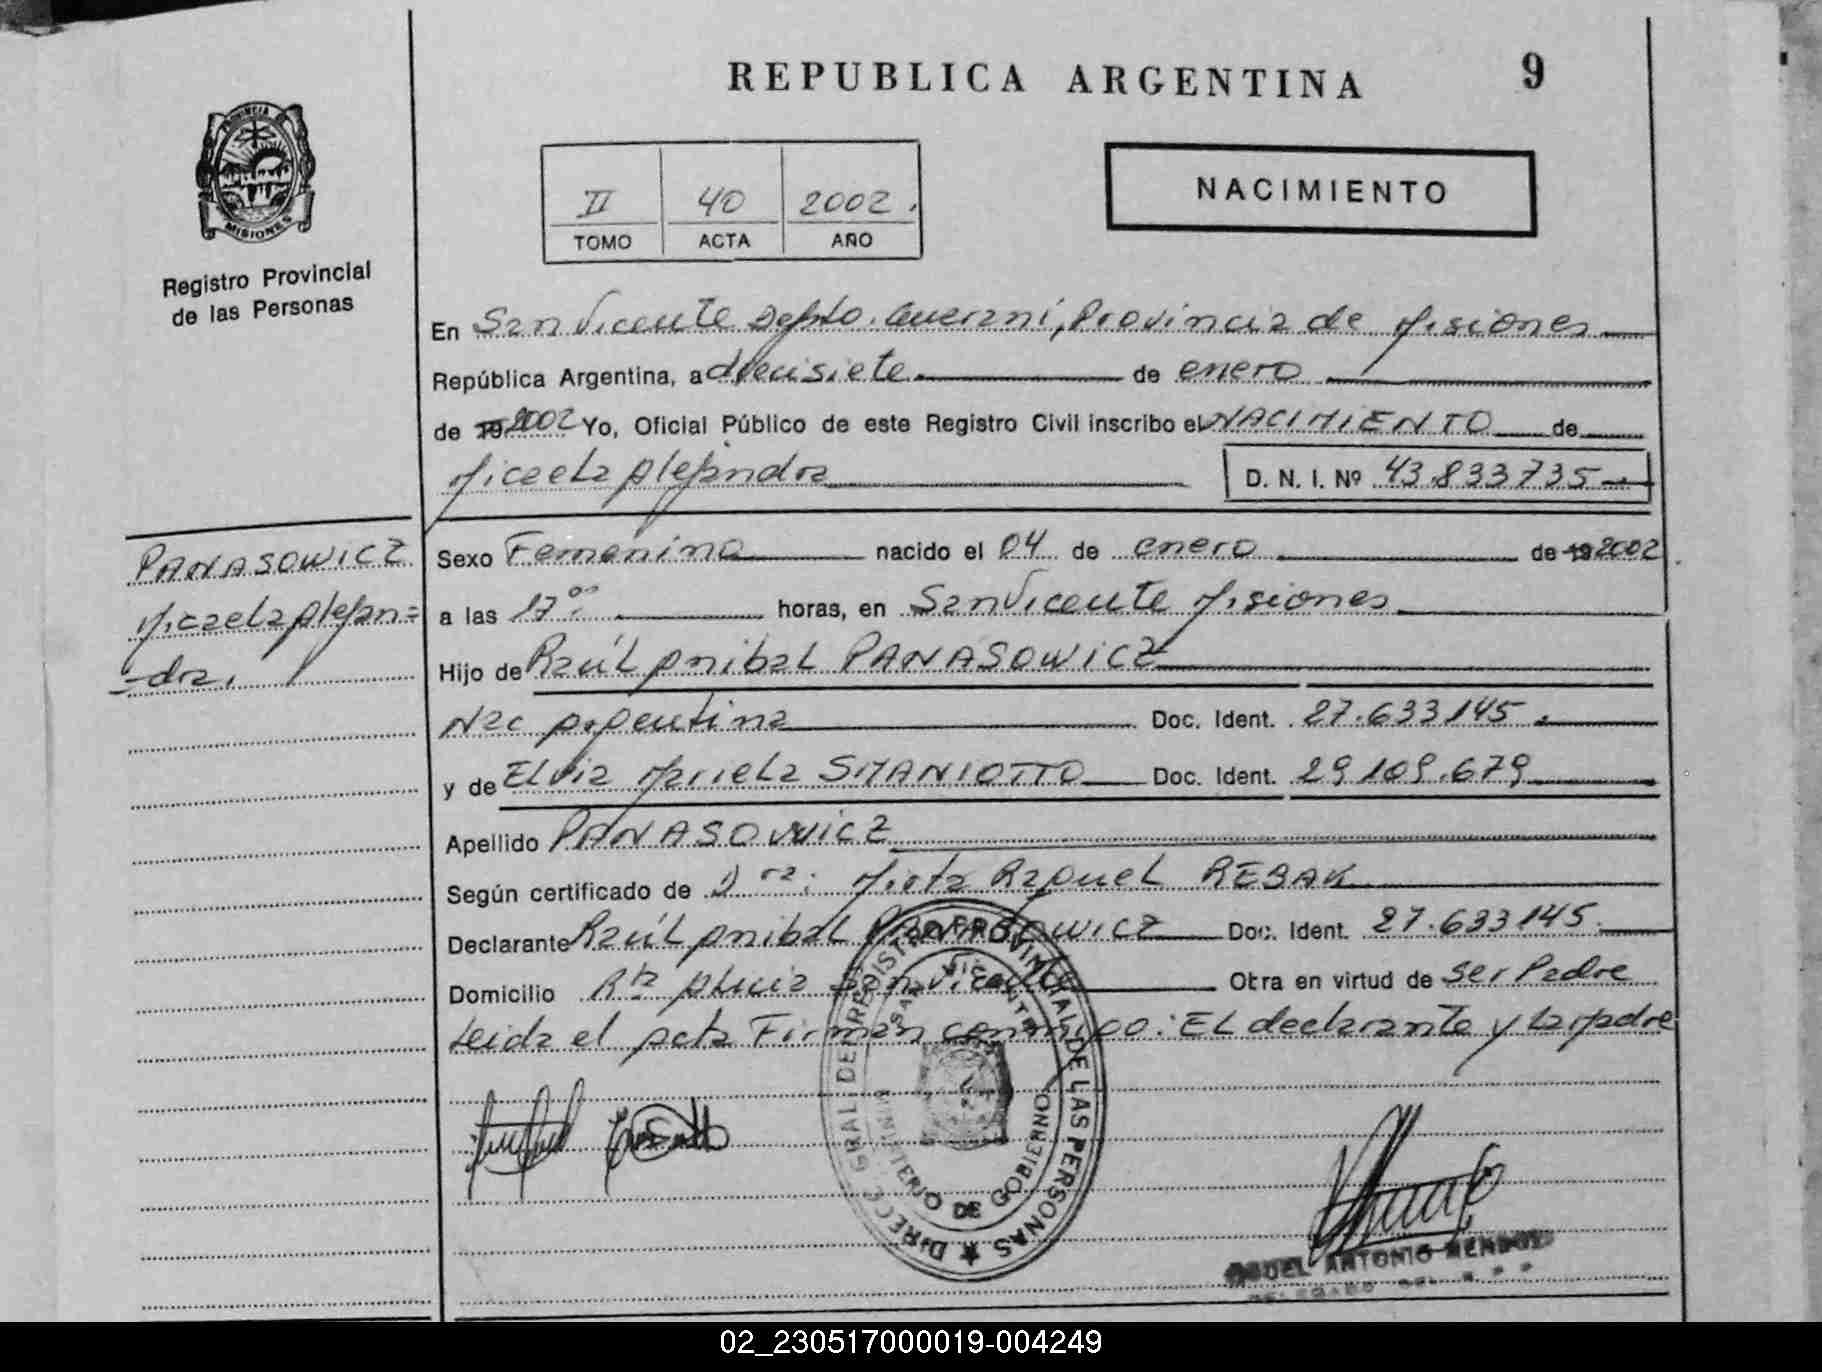 REPUBLICA ARGENTINA
9
PROVINCIA DE
MISIONES
Registro Provincial
de las Personas
II 40 2002.
TOMO ACTA AÑO
NACIMIENTO
En San Vicente Dpto. Guaraní, Provincia de Misiones
República Argentina, a diecisiete de enero
de 19 2002 Yo, Oficial Público de este Registro Civil inscribo el NACIMIENTO de
Micaela Alejandra D. N. I. Nº 43.833735
PANASOWICZ
Micaela Alejan=
=dra.
Sexo Femenino nacido el 04 de enero de 19 2002
a las 17 00 horas, en San Vicente Misiones
Hijo de Raúl Anibal PANASOWICZ
Nac Argentina Doc. Ident. 27.633.145.
y de Elvia Mariela SMANIOTTO Doc. Ident. 29.109.679
Apellido PANASOWICZ
Según certificado de Dra. Mirta Raquel REBAK
Declarante Raúl Anibal PANASOWICZ Doc. Ident. 27.633.145.
Domicilio Rta Alicia San Vicente Otra en virtud de ser Padre
Leida el Acta Firman conmigo: El declarante y la Madre
DIRECC GRAL DE REGISTRO PROVINCIAL DE LAS PERSONAS
SAN VICENTE
MINISTERIO DE GOBIERNO
MIGUEL ANTONIO MENDOZ
DELEGADO DEL R P P
02_230517000019-004249